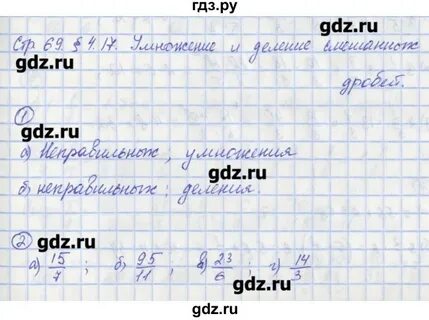 гдз.ру
Стр 69. § 4.17. Умножение и деление смешанных
дробей.
gdz.ru gdz.ru
①
gdz.ru
а) Неправильных; умножения
gdz.ru
б) неправильных; деления.
gdz.ru gdz.ru
②
gdz.ru
а) 15/7; б) 95/11; в) 23/6; г) 14/3
gdz.ru gdz.ru